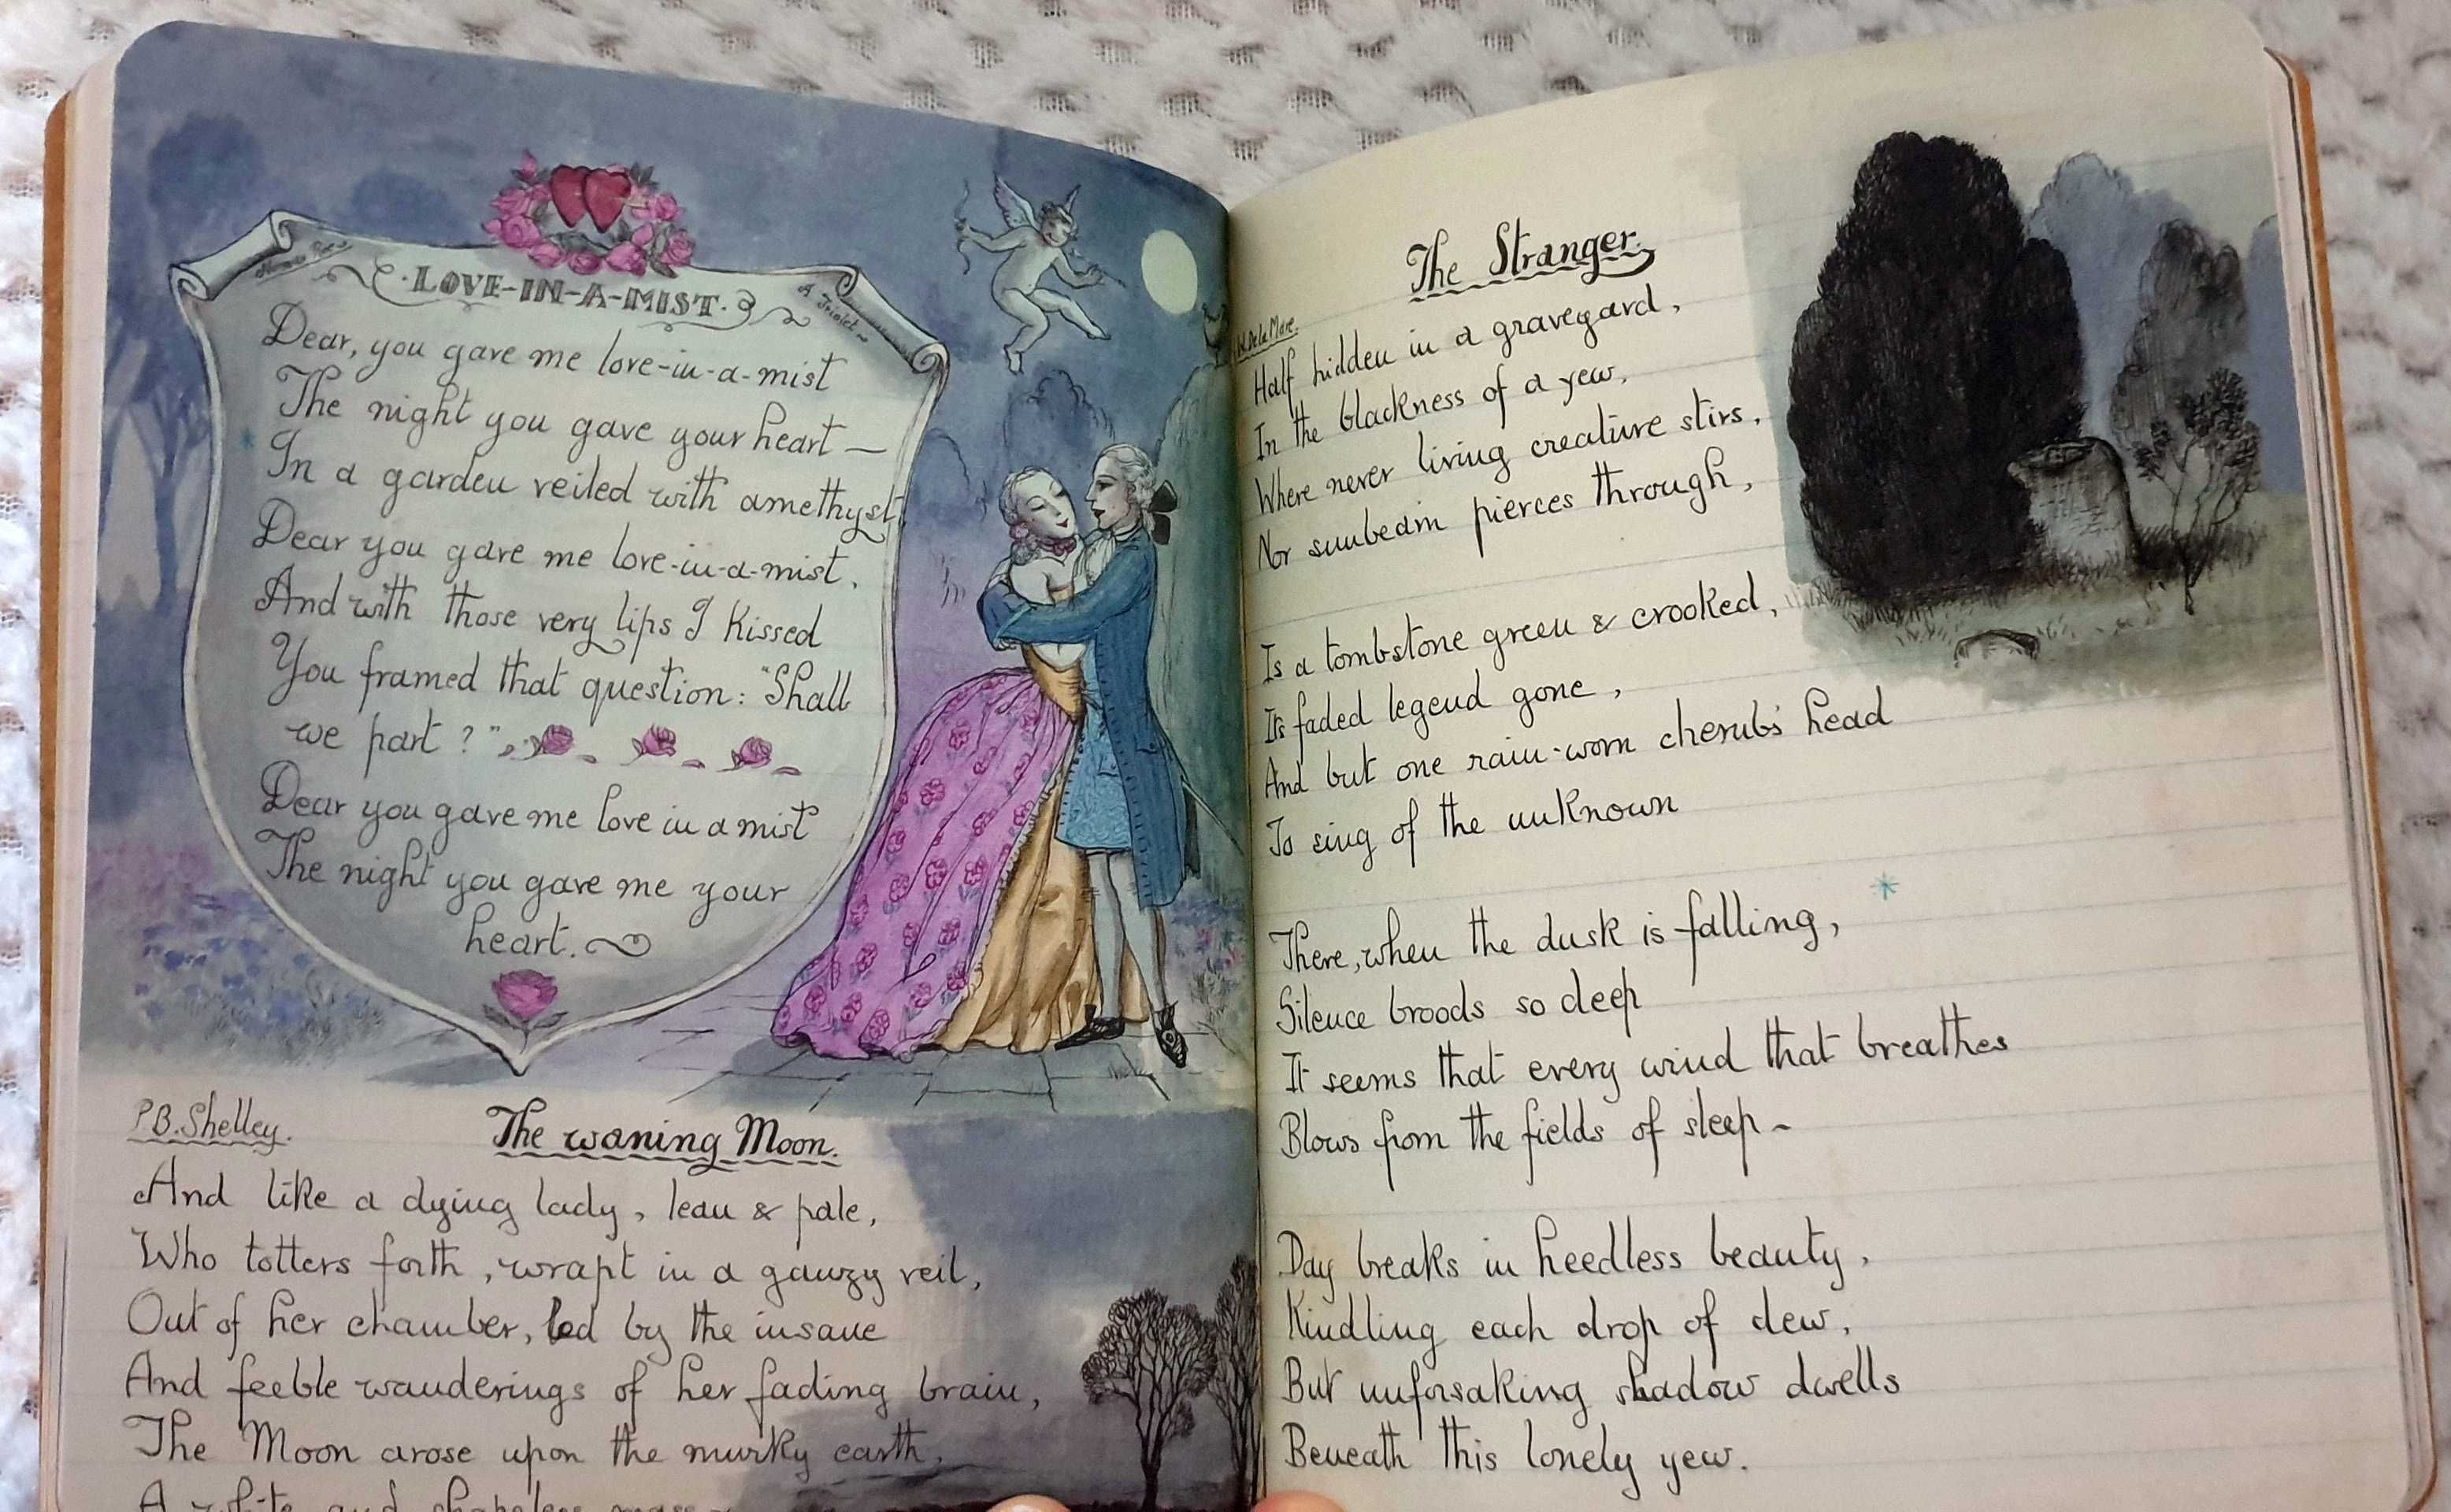 ·LOVE-IN-A-MIST·
A Triolet
Dear, you gave me love-in-a-mist
The night you gave your heart —
In a garden veiled with amethyst,
Dear you gave me love-in-a-mist,
And with those very lips I kissed
You framed that question: "Shall
we part?"
Dear you gave me love in a mist
The night you gave me your
heart.
P.B. Shelley.
The waning Moon.
And like a dying lady, lean & pale,
Who totters forth, wrapt in a gauzy veil,
Out of her chamber, led by the insane
And feeble wanderings of her fading brain,
The Moon arose upon the murky earth,
A white and shapeless mass
The Stranger.
W. De la Mare.
Half hidden in a graveyard,
In the blackness of a yew,
Where never living creature stirs,
Nor sunbeam pierces through,
Is a tombstone green & crooked,
Its faded legend gone,
And but one rain-worn cherub's head
To sing of the unknown
There, when the dusk is falling,
Silence broods so deep
It seems that every wind that breathes
Blows from the fields of sleep ~
Day breaks in heedless beauty,
Kindling each drop of dew,
But unforsaking shadow dwells
Beneath this lonely yew.